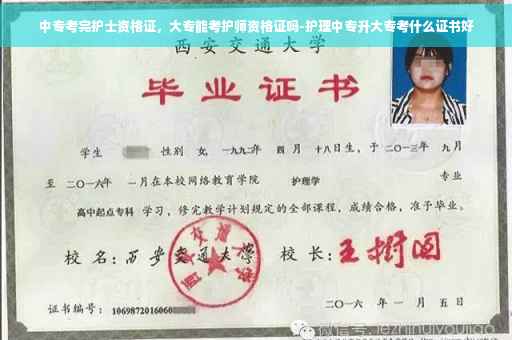 中专考完护士资格证，大专能考护师资格证吗-护理中专升大专考什么证书好
西安交通大学
毕业证书
学生 性别 女，一九九二年 四月 十八日生，于二〇一三年 九月
至 二〇一六年 一月在本校网络教育学院 护理学 专业
高中起点专科 学习，修完教学计划规定的全部课程，成绩合格，准予毕业。
校 名：西安交通大学 校 长：王树国
西安交通大学
证书编号：1069872016060
二〇一六 年 一 月 五 日
微信号: jezhihuiyoujiao